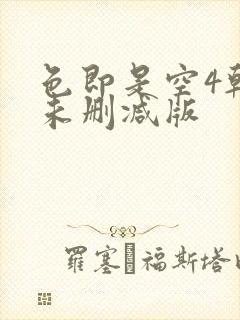 色即是空4韩
未删减版
羅塞 福斯塔